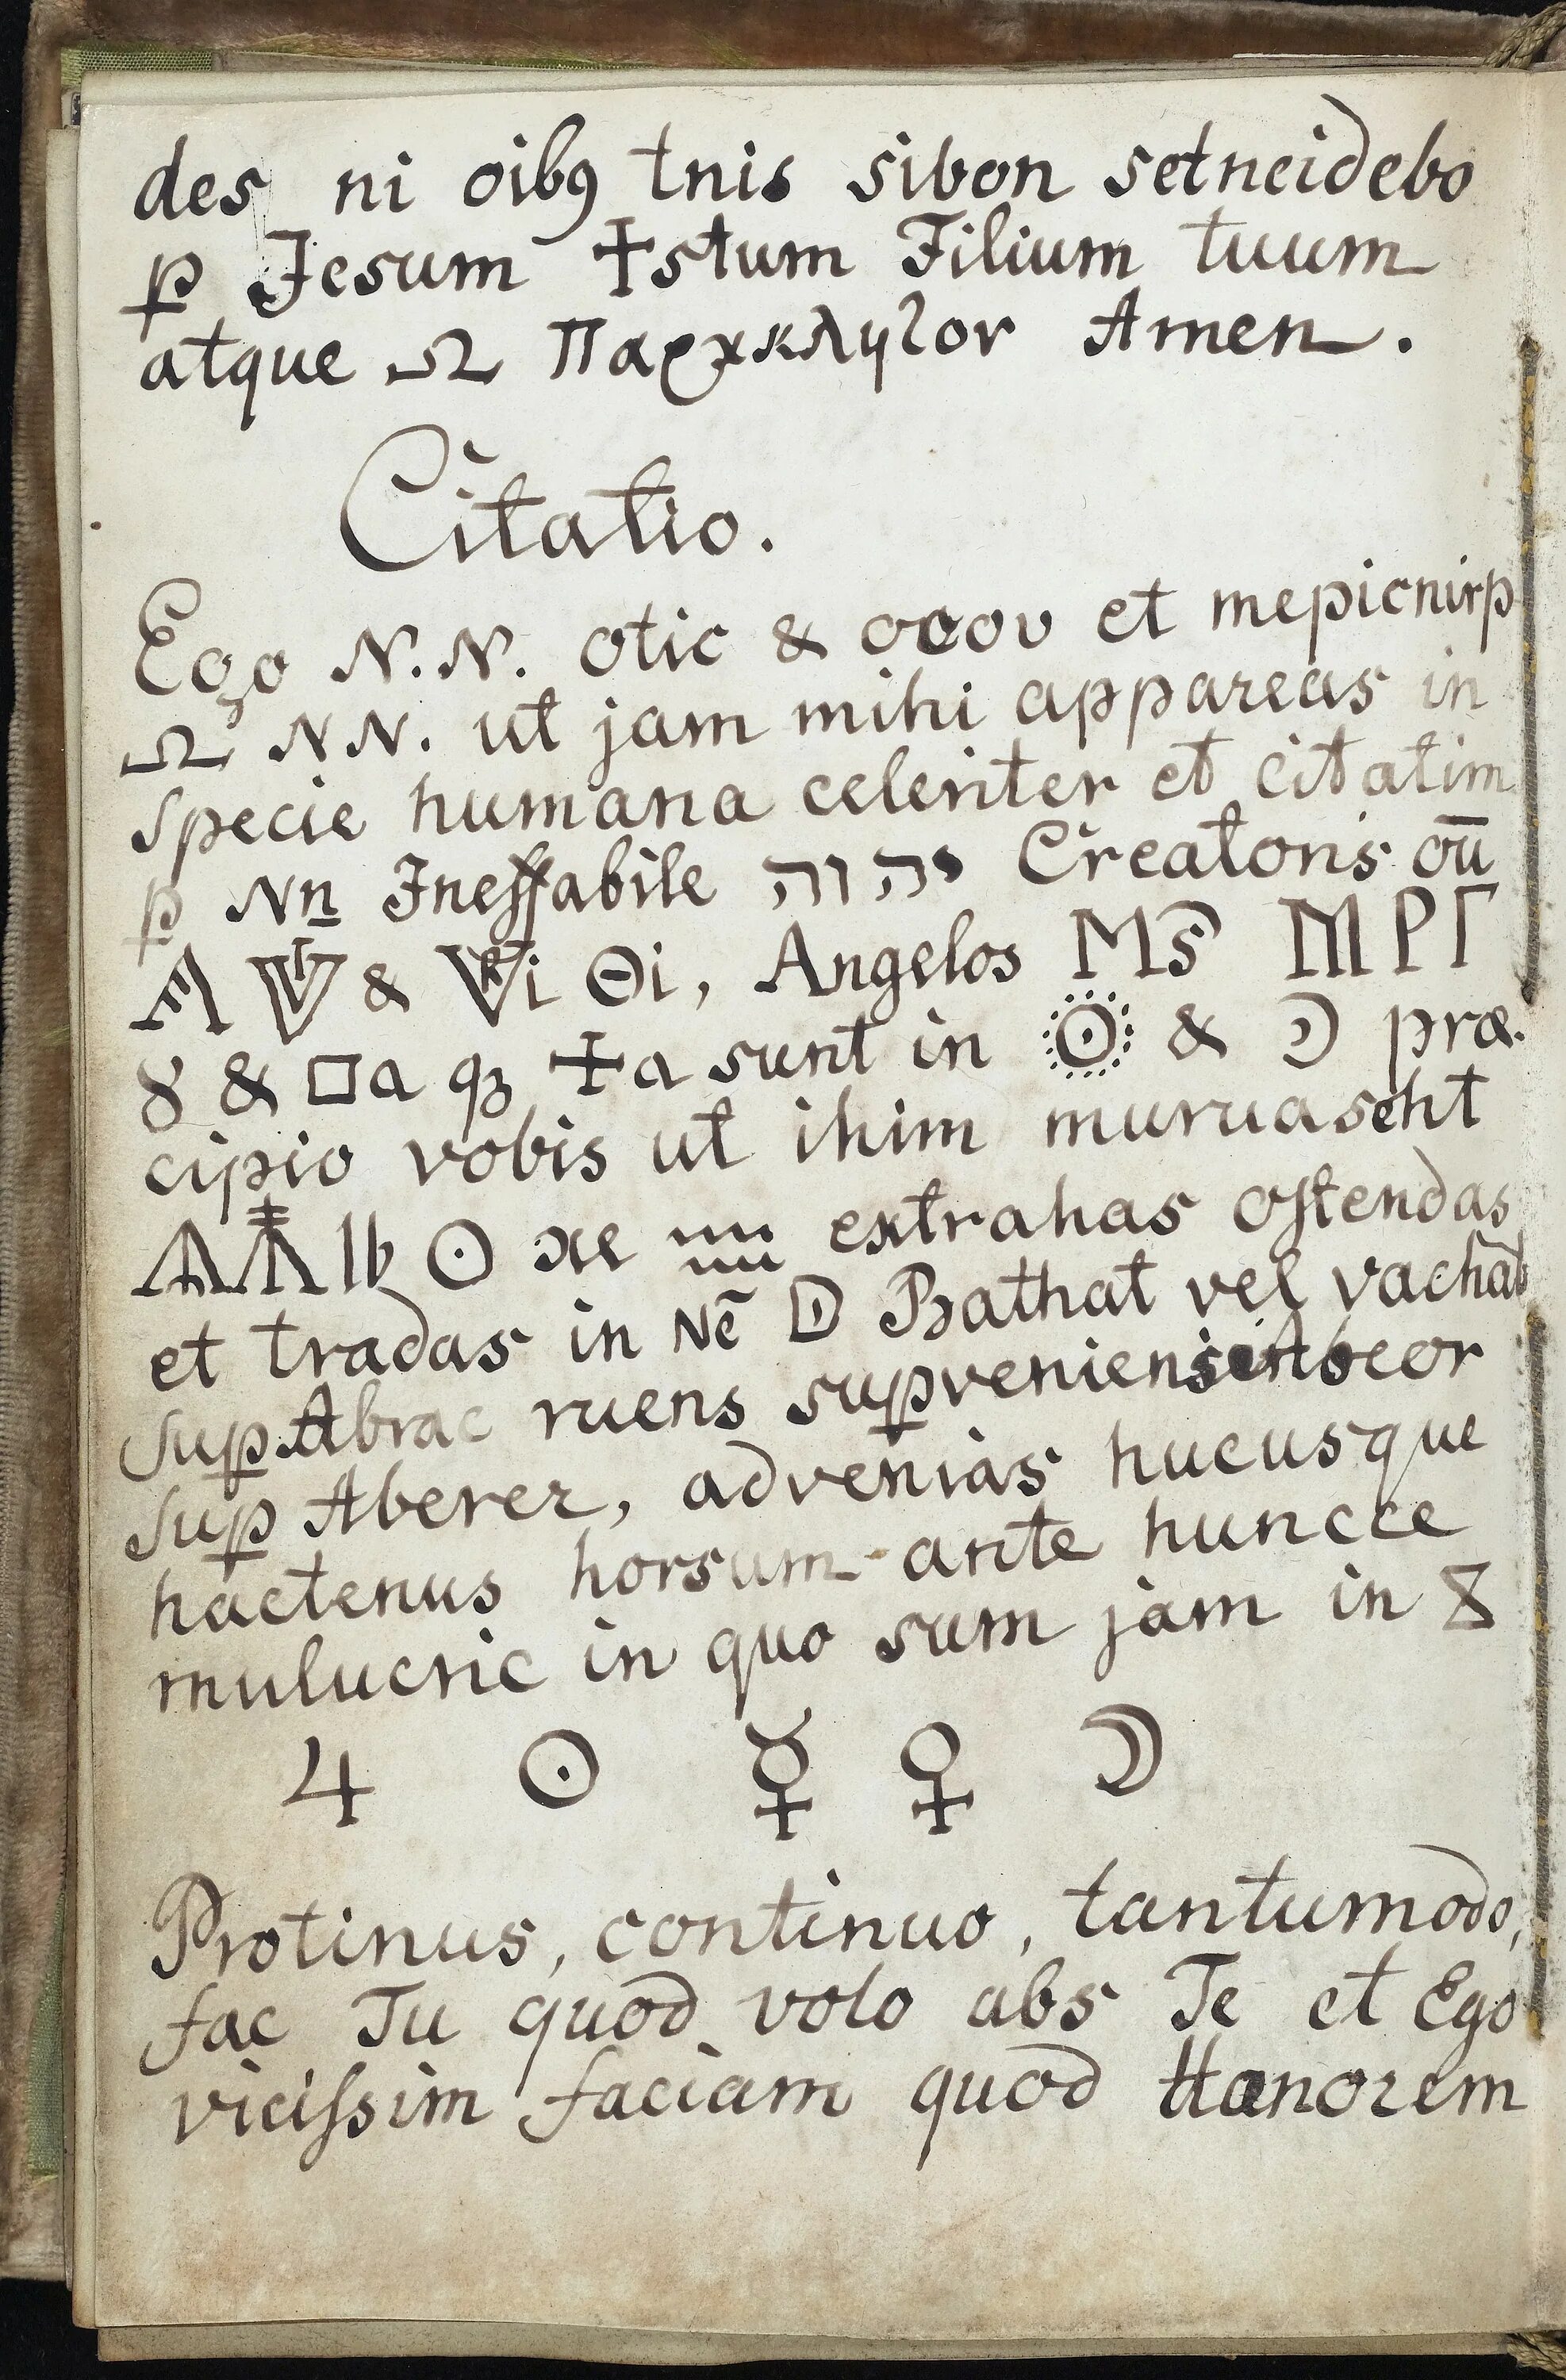 des ni oibꝯ tnis sibon setneidebo
ꝑ Jesum ✝stum Filium tuum
atque Ω Παρακλητον Amen.
Citatio.
Ego N.N. otic & ocov et mepicnirp
Ω NN. ut jam mihi appareas in
specie humana celeriter et citatim
ꝑ Nn Ineffabile יהוה Creatoris oū
& Θi, Angelos
& □a qꝫ ✝a sunt in ☉ & ☽ præ-
cipio vobis ut ihim muruaseht
☉ extrahas ostendas
et tradas in Nē Bathat vel vachat
suꝑ Abrac ruens suꝑveniens Abeor
suꝑ Aberer, advenias hucusque
hactenus horsum ante huncce
mulucric in quo sum jam in
♃ ☉ ☿ ♀ ☽
Protinus, continuo, tantumodo,
fac Tu quod volo abs Te et Ego
vicissim faciam quod Honorem